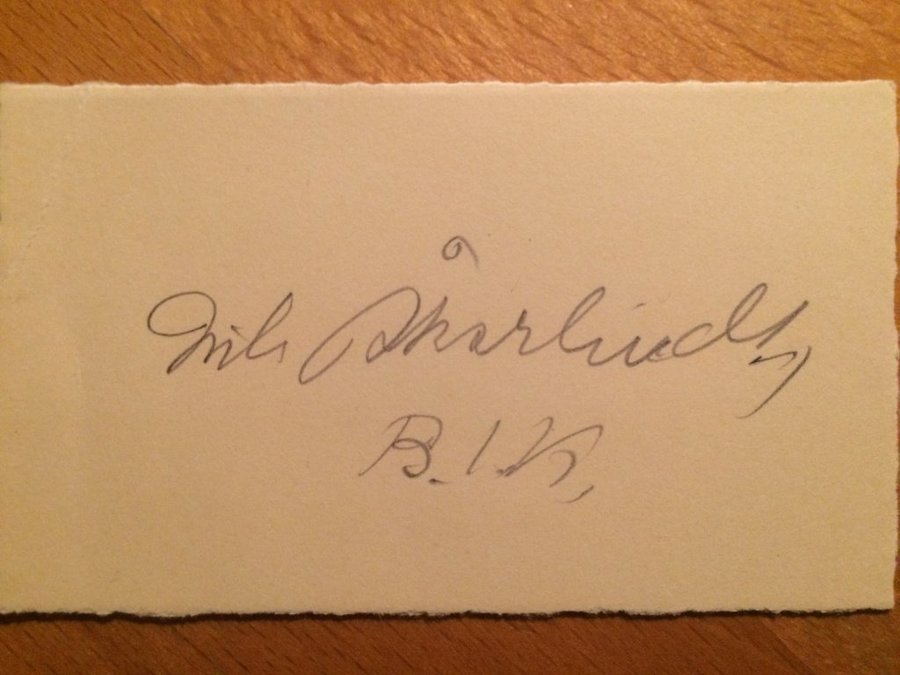 Nils Åkerlindh,
B.I.K.